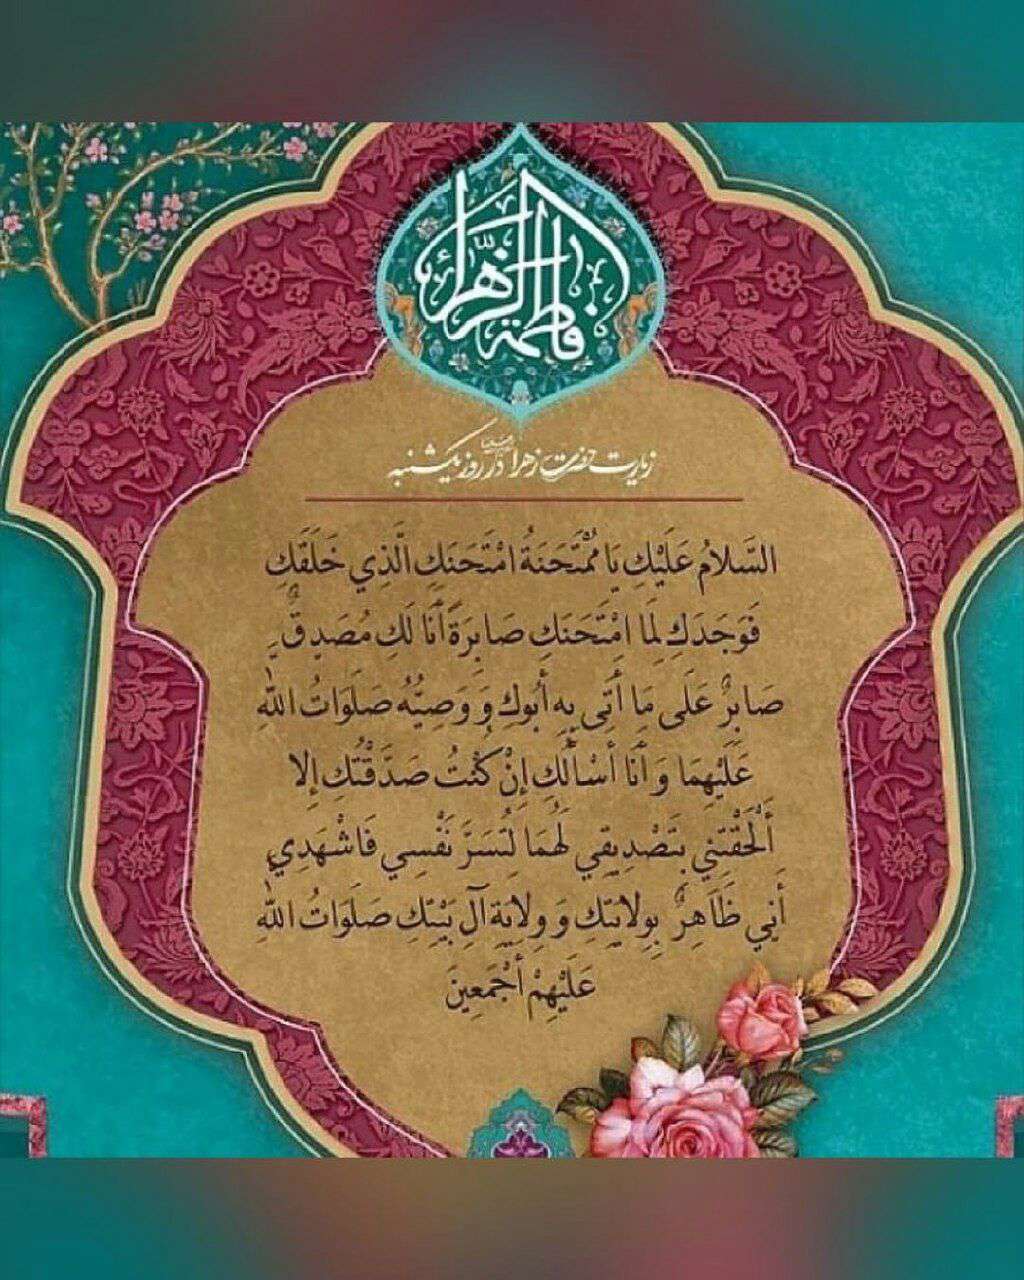 فاطمة الزهراء
زیارت حضرت زهرا در روز یکشنبه
السَّلامُ عَلَيْكِ يَا مُمْتَحَنَةُ امْتَحَنَكِ الَّذِي خَلَقَكِ
فَوَجَدَكِ لِمَا امْتَحَنَكِ صَابِرَةً أَنَا لَكِ مُصَدِّقٌ
صَابِرٌ عَلَى مَا أَتَى بِهِ أَبُوكِ وَ وَصِيُّهُ صَلَوَاتُ اللَّهِ
عَلَيْهِمَا وَ أَنَا أَسْأَلُكِ إِنْ كُنْتُ صَدَّقْتُكِ إِلا
أَلْحَقْتِنِي بِتَصْدِيقِي لَهُمَا لِتُسَرَّ نَفْسِي فَاشْهَدِي
أَنِّي ظَاهِرٌ بِوِلايَتِكِ وَ وِلايَةِ آلِ بَيْتِكِ صَلَوَاتُ اللَّهِ
عَلَيْهِمْ أَجْمَعِينَ